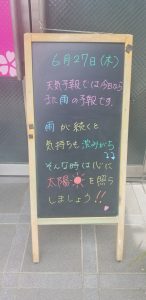 6月27日(木)
天気予報では今日から
また雨の予報です。
雨が続くと
気持ちも沈みがち
そんな時は心に
太陽を照ら
しましょう!!